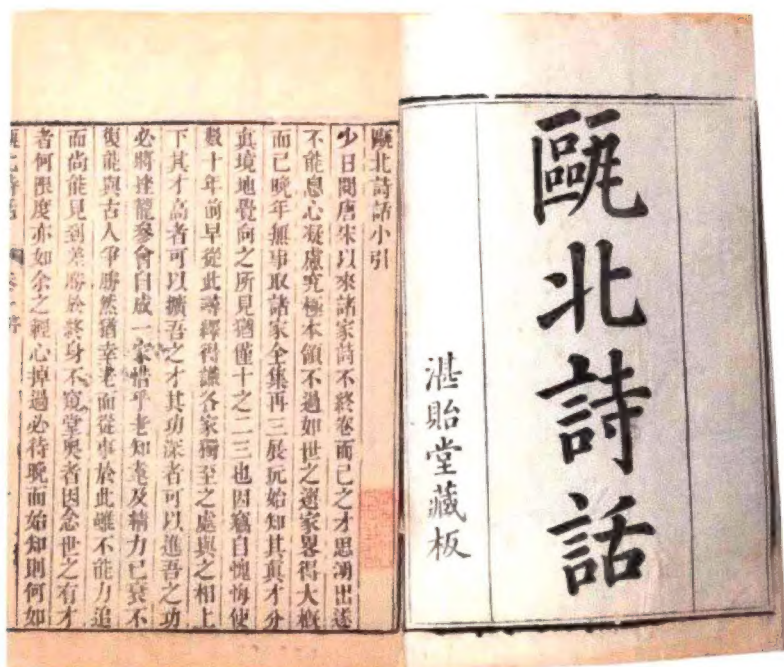 甌北詩話
湛貽堂藏板
甌北詩話小引
少日閱唐宋以來諸家詩不終卷而己之才思湧出遂
不能息心凝慮究極本領不過如世之選家畧得大概
而已晚年無事取諸家全集再三展玩始知其眞才分
眞境地覺向之所見猶僅十之二三也因竊自愧悔使
數十年前早從此尋繹得識各家獨至之處與之相上
下其才高者可以擴吾之才其功深者可以進吾之功
必將挫籠參會自成一家惜乎老知耄及精力已衰不
復能與古人爭勝然猶幸老而從事於此雖不能力追
而尚能見到差勝於終身不窺堂奧者因念世之有才
者何限度亦如余之輕心掉過必待晚而始知則何如
甌北詩話